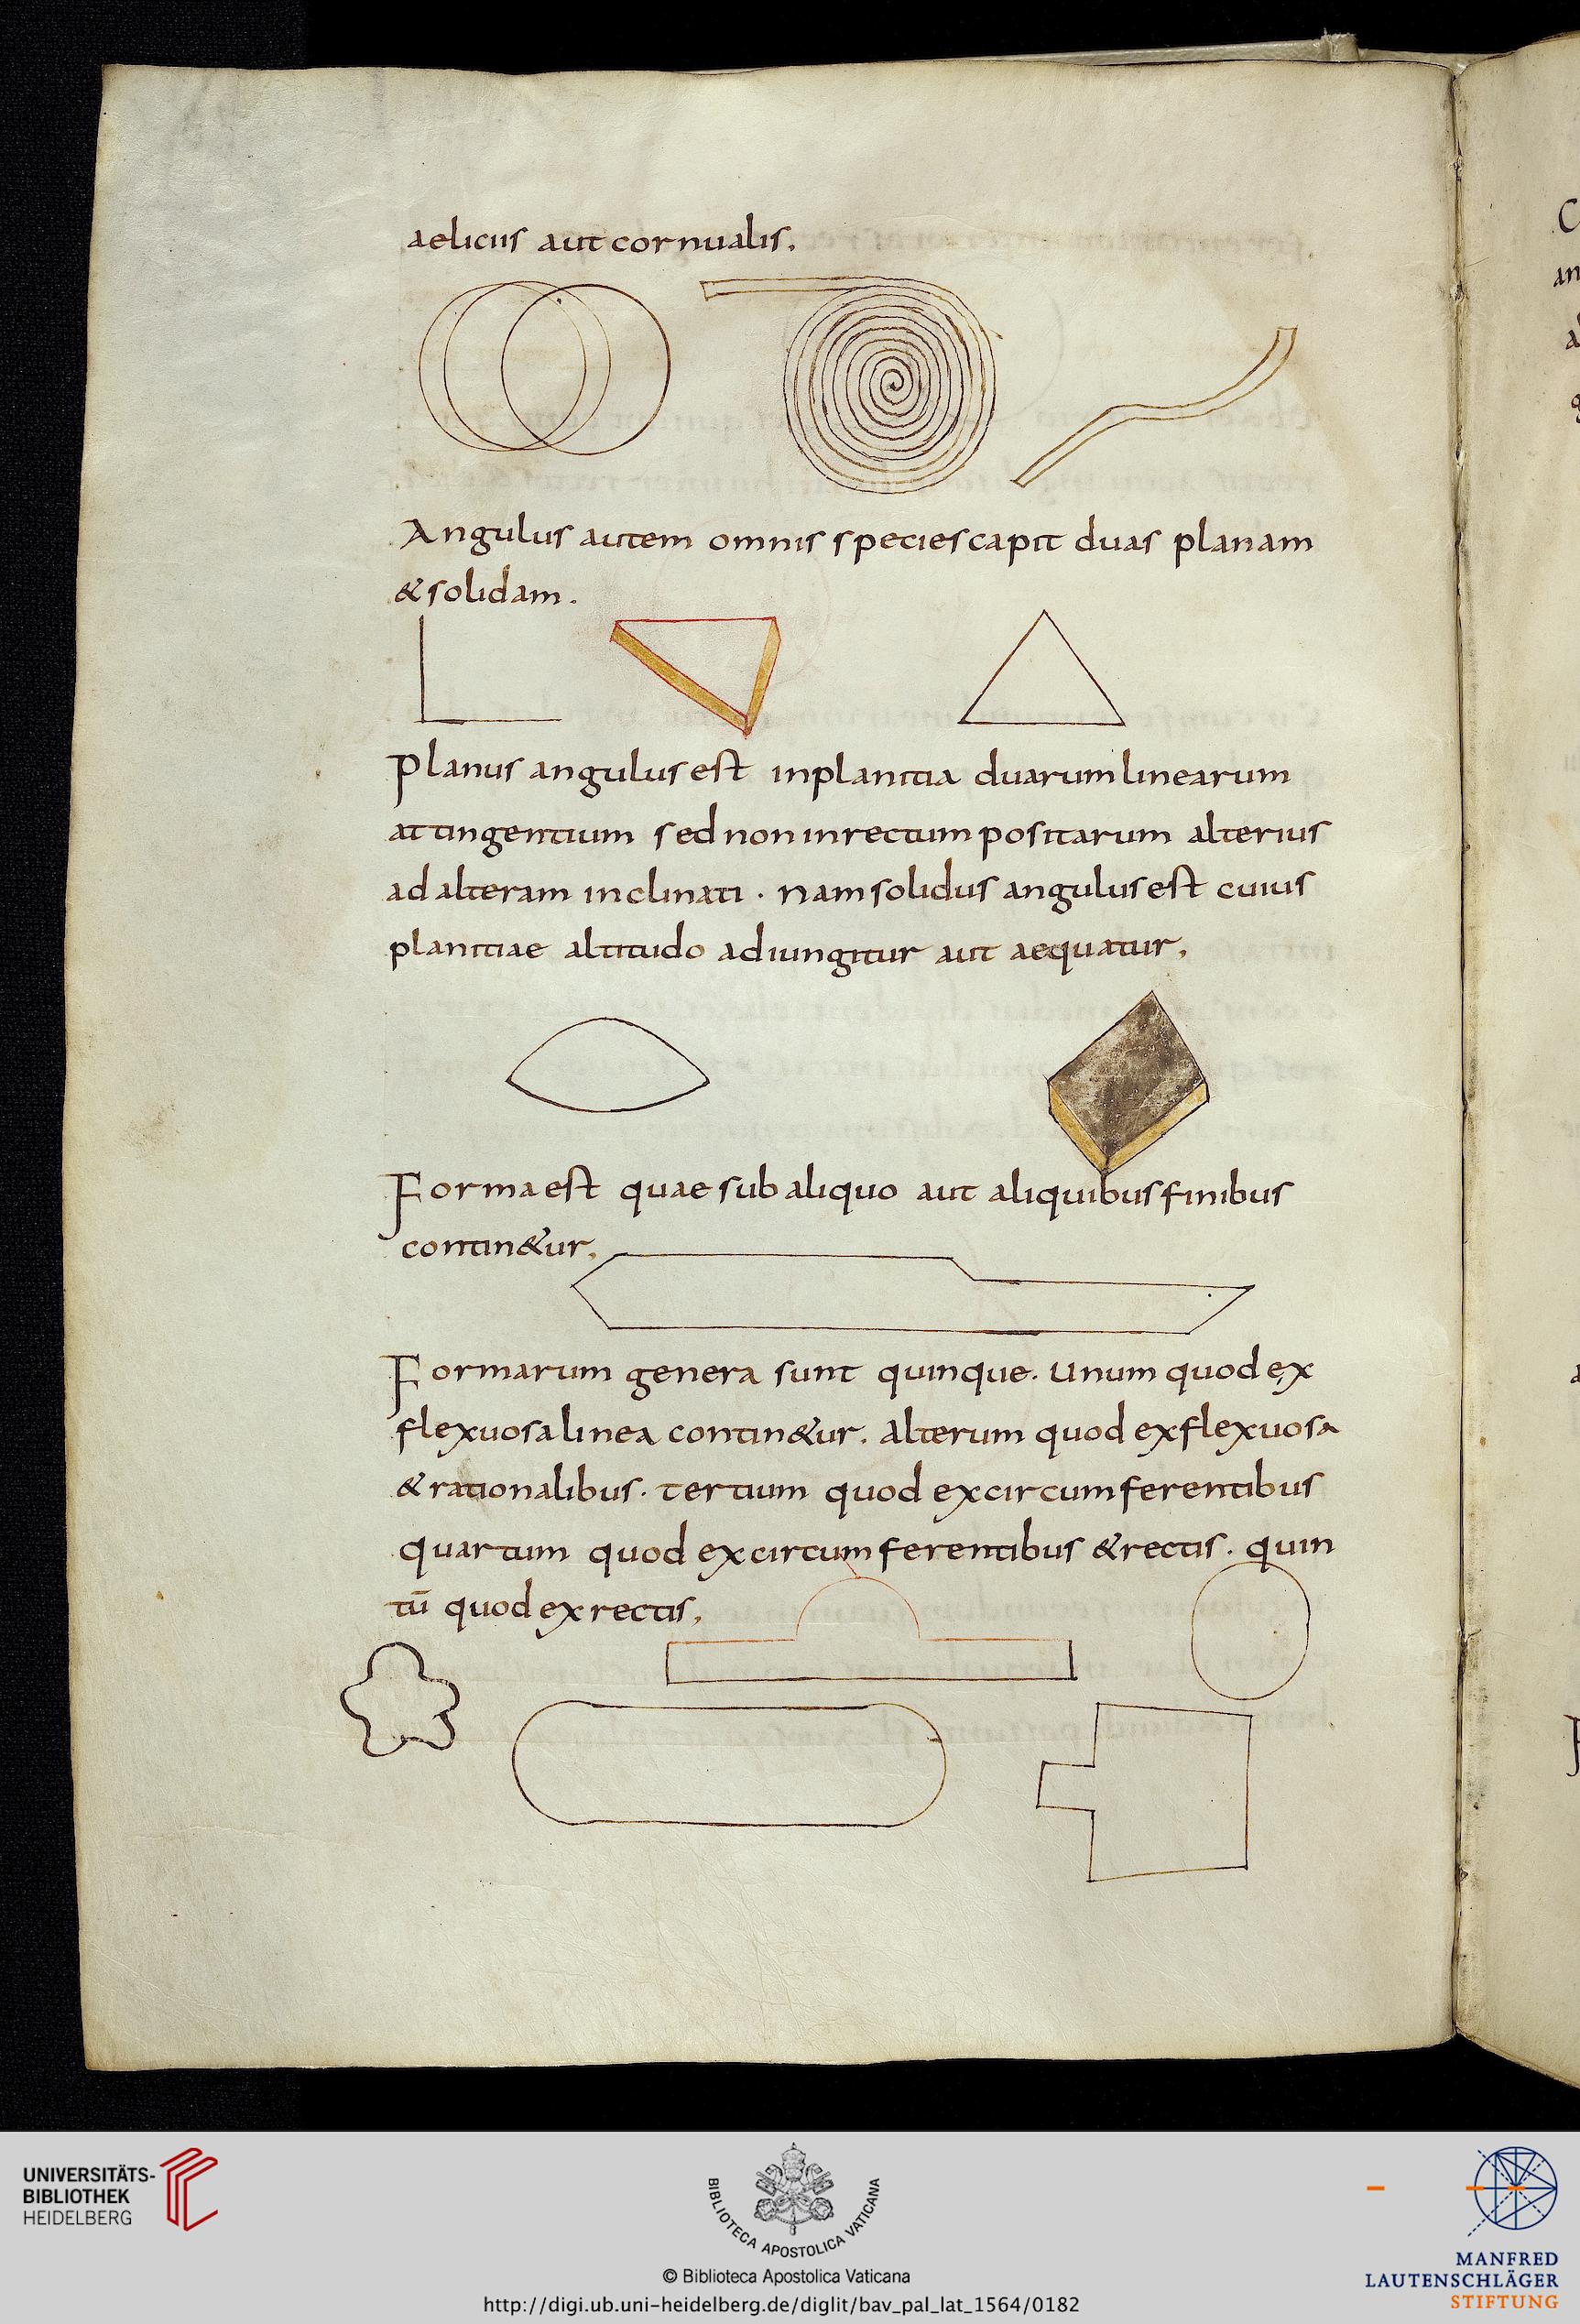 aelicus aut cornualis.
Angulus autem omnis species capit duas planam
& solidam.
Planus angulus est in planitia duarum linearum
attingentium sed non in rectum positarum alterius
ad alteram inclinati. Nam solidus angulus est cuius
planitiae altitudo adiungitur aut aequatur.
Forma est quae sub aliquo aut aliquibus finibus
contin&ur.
Formarum genera sunt quinque. Unum quod ex
flexuosa linea contin&ur. Alterum quod ex flexuosa
& rationalibus. Tertium quod ex circumferentibus
quartum quod ex circumferentibus & rectis. quin
tū quod ex rectis.
UNIVERSITÄTS-
BIBLIOTHEK
HEIDELBERG
BIBLIOTECA APOSTOLICA VATICANA
© Biblioteca Apostolica Vaticana
http://digi.ub.uni-heidelberg.de/diglit/bav_pal_lat_1564/0182
MANFRED
LAUTENSCHLÄGER
STIFTUNG